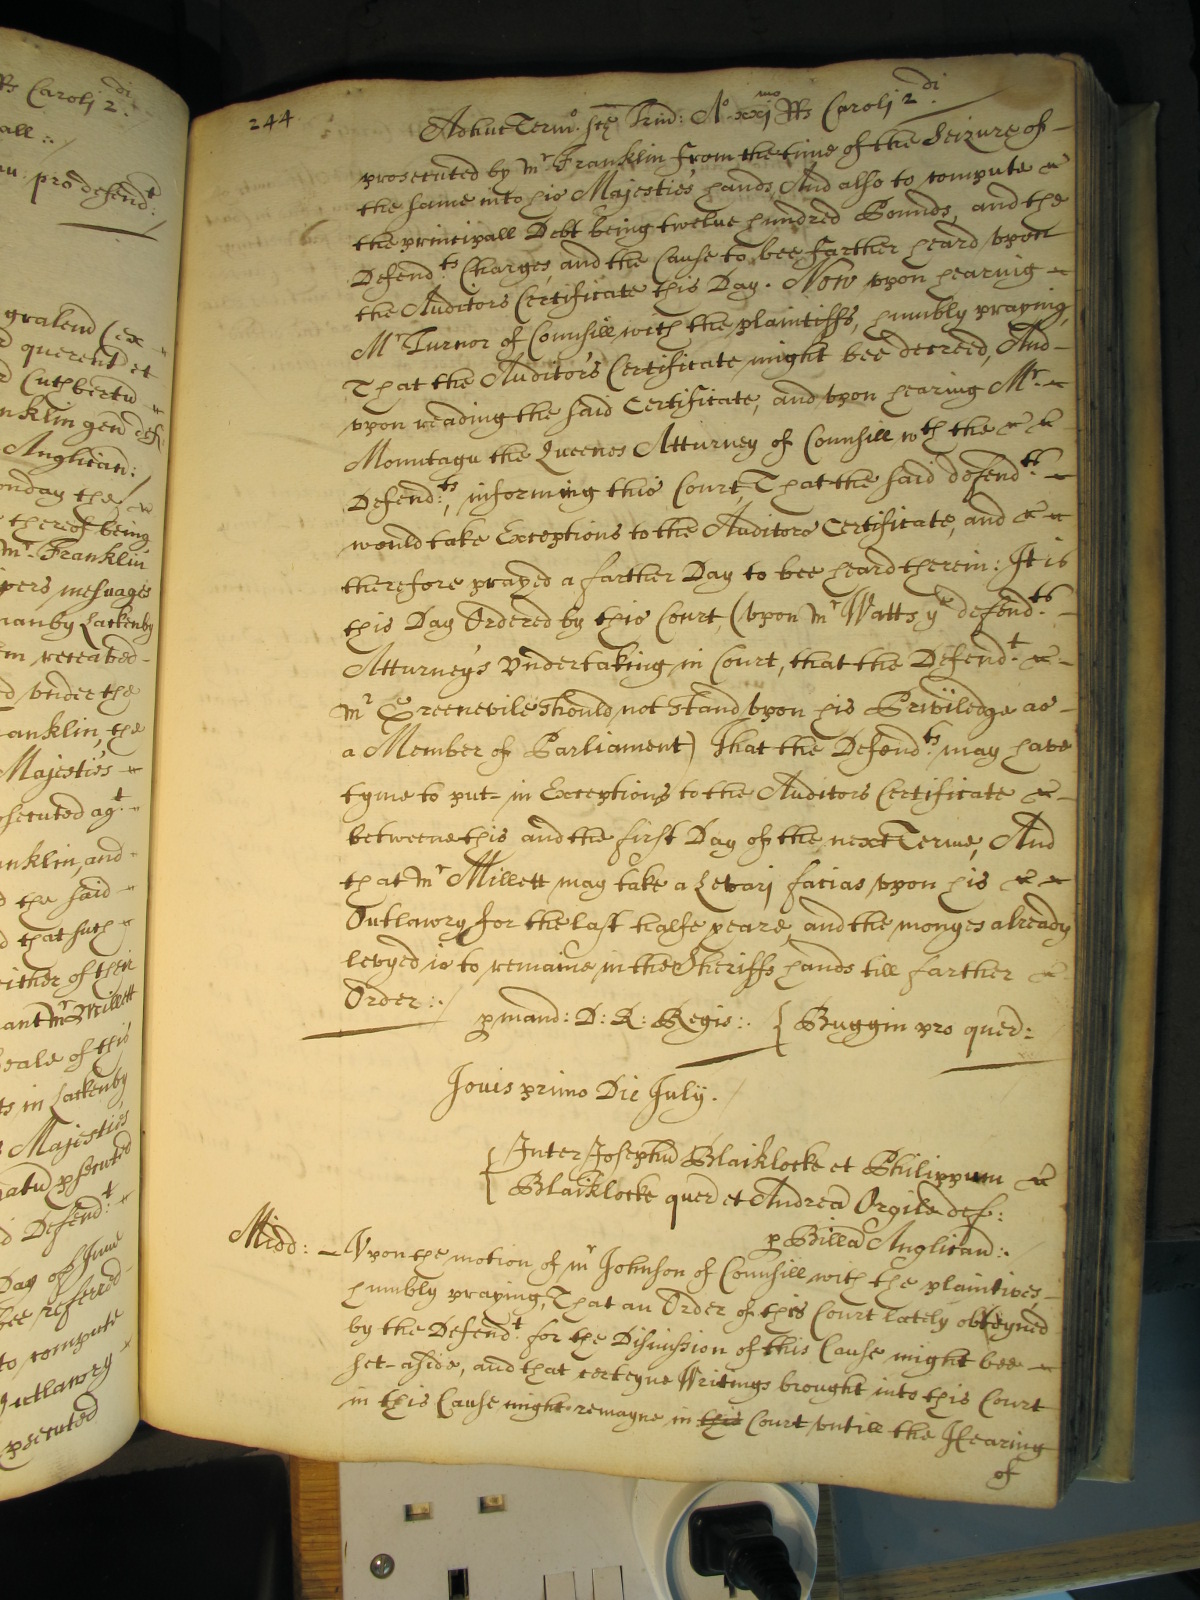 Rs Carolj 2.di
all ::
pro defend.t
gralend (ex
querent et
Cuthbertu
nklin gen def
Anglican:
onday the
thereof being
Mr. Franklin
pers mesuages
nanby Lackenby
em receaved
d vnder the
anklin, the
Majesties
osecuted ag.t
anklin, and
d the said
d that such
either of their
ant Mr Millett
Seale of this
ts in Lackenby
s Majesties
psecuted
Defend:t
Day of June
bee referred
to compute
Outlawry
psecuted
244
Adhuc Termo. Sce Trin: Ao xxjmo Rs Carolj 2di.
prosecuted by Mr Franklin from the time of the Seizure of
the same into his Majesties hands, And also to compute
the principall Debt being twelve hundred Pounds, and the
Defend:ts Charges, and the Cause to bee farther heard vpon
the Auditors Certificate this Day. Now vpon hearing
Mr Turnor of Counsill with the plaintiffs, humbly praying,
That the Auditors Certificate might bee decreed, And
vpon reading the said Certificate, and vpon hearing Mr.
Mountagu the Queenes Atturney of Counsill wth the
Defend:ts, informing this Court, That the said defend:ts
would take Exceptions to the Auditors Certificate, and
therefore prayed a farther Day to bee heard therein: It is
this Day Ordered by this Court, (vpon Mr Watts ye defend:ts
Atturneys Vndertaking in Court, that the Defend:t
Mr Greenevile should not stand vpon his Priviledge as
a Member of Parliament) That the Defend:ts may have
tyme to put in Exceptions to the Auditors Certificate
betweene this and the first Day of the next Terme, And
that Mr Millett may take a Levarj facias vpon his
Outlawry for the last halfe yeare, and the monyes already
levyed is to remaine in the Sheriffs hands till farther
Order:.
pmand: D: R: Regis:. { Buggin pro quer:
Jovis primo Die July.
Inter Josephu Blaiklocke et Philippum
Blaiklocke quer et Andrea Orgile def:
p Billa Anglican:.
Midd:
Vpon the motion of Mr Johnson of Counsill with the plaintives,
humbly praying, That an Order of this Court lately obteyned
by the Defend:t for the Dismission of this Cause might bee
set aside, and that certeyne Writings brought into this Court
in this Cause might remayne in this Court vntill the Hearing
of